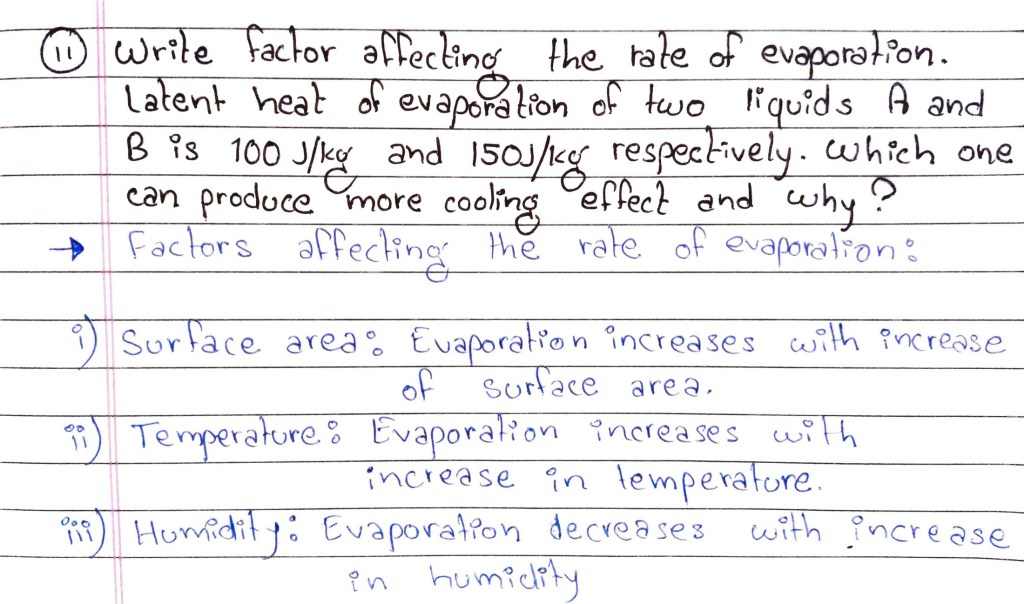 11 Write factor affecting the rate of evaporation.
Latent heat of evaporation of two liquids A and
B is 100 J/kg and 150J/kg respectively. Which one
can produce more cooling effect and why?
→ Factors affecting the rate of evaporation:
i) Surface area: Evaporation increases with increase
of surface area.
ii) Temperature: Evaporation increases with
increase in temperature.
iii) Humidity: Evaporation decreases with increase
in humidity